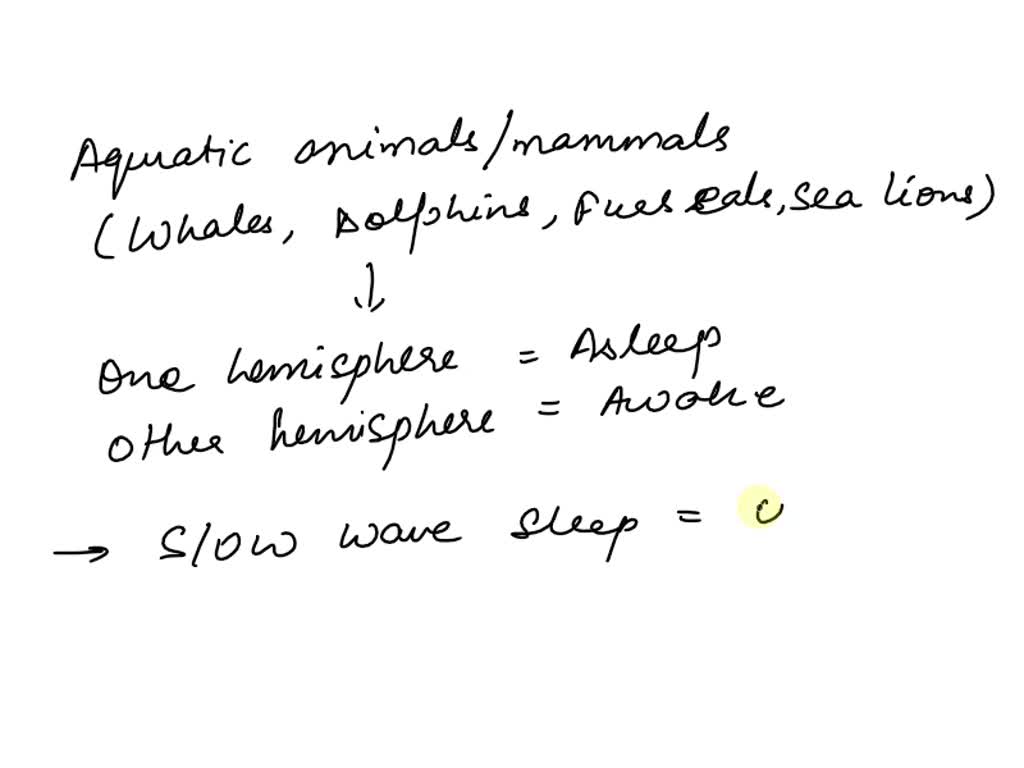 Aquatic animals/mammals
(Whales, Dolphins, Fur seals, sea lions)
↓
One hemisphere = Asleep
Other hemisphere = Awake
→ Slow wave sleep =